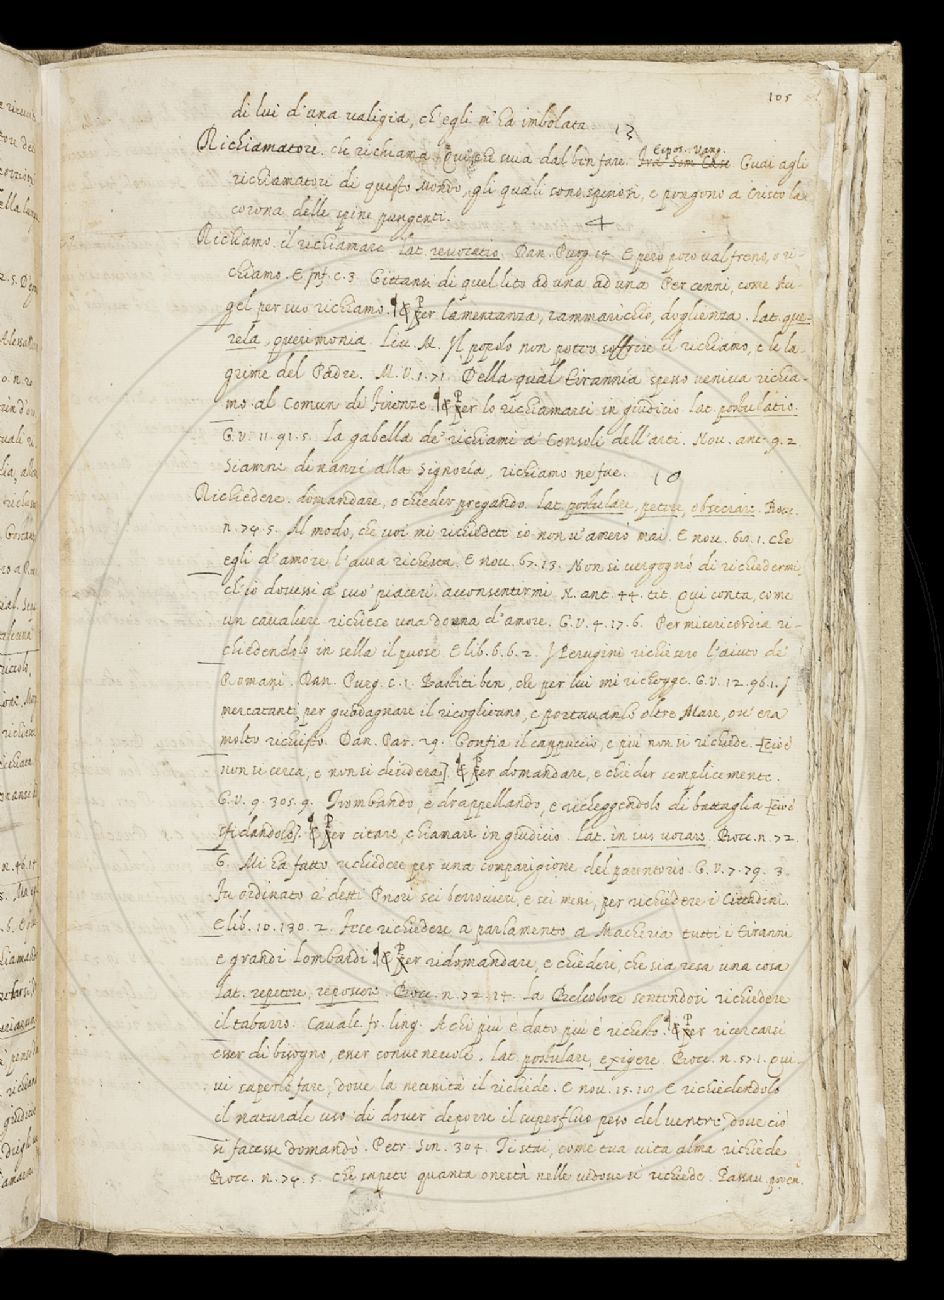 105
di lui d'una valigia, ch'egli m'ha imbolata.
13
Espos. Vang.
Richiamatore. che richiama qui che svia dal ben fare. Guai agli
richiamatori di questo Mondo, gli quali sono spinosi, e pongono a Cristo la
corona delle spine pungenti.
4
Richiamo. il richiamare lat. revocatio. Dan. Purg. 14. E però poco val freno, o ri-
chiamo. E Inf. c. 3. Gittansi di quel lito ad una ad una Per cenni, come Au-
gel per suo richiamo. ¶ Per lamentanza, rammarichio, doglienza. lat. que-
rela, querimonia. Liv. M. Il popolo non potro soffrire il richiamo, e le la-
grime del Padre. M.V.1.71. Della qual tirannia spesso veniva richia-
mo al Comun di Firenze ¶ Per lo richiamarsi in giudicio lat. postulatio.
G.V. 11. 91. 5. La gabella de' richiami a' Consoli dell'arti. Nov. ant. 9. 2.
Siamni dinanzi alla Signoria, richiamo ne fue.
10
Richiedere. domandare, o chieder pregando. lat. postulare, petere, obsecrare. Bocc.
n. 74. 5. Al modo, che voi mi richiedete io non v'amerò mai. E nov. 60. 1. che
egli d'amore l'avea richiesta. E nov. 67. 13. Non si vergognò di richiedermi
ch'io dovessi a' suo' piaceri acconsentirmi N. ant. 44. tit. Qui conta, come
un cavaliere richiese una donna d'amore. G.V. 4. 17. 6. Per misericordia ri-
chiedendolo in sella il puose. E lib. 6. 6. 2. I Perugini richiesero l'aiuto de'
Romani. Dan. Purg. c. 1. Bastiti ben, che per lui mi richegge. G.V. 12. 96. 1. I
mercatanti per guadagnare il ricoglievano, e portavanlo oltre Mare, ov' era
molto richiesto. Dan. Par. 29. Gonfia il cappuccio, e più non si richiede. [cioè
non si cerca, e non si desidera]. ¶ Per domandare, e chieder semplicemente.
G.V. 9. 305. 9. Trombando, e drappellando, e richeggendolo di battaglia [cioè
sfidandolo]. ¶ Per citare, chiamare in giudicio. Lat. in ius vocare. Bocc. n. 72.
6. Mi ha fatto richiedere per una comparigione del parentorio. G.V. 7. 79. 3.
Fu ordinato a' detti Priori sei berrovieri, e sei messi, per richiedere i Cittadini.
E lib. 10. 130. 2. Fece richiedere a parlamento a Macheria tutti i Tiranni
e grandi Lombardi ¶ Per ridomandare, e chiedere, che sia resa una cosa
lat. repetere, reposcere. Bocc. n. 72. 14. La Belcolore sentendosi richiedere
il tabarro. Cavalc. fr. ling. A chi più è dato più è richiesto. ¶ Per ricercarsi
esser di bisogno, esser convenevole. lat. postulare, exigere Bocc. n. 57. 1. Qui-
vi saperlo fare, dove la necessità il richiede. E nov. 15. E richiedendolo
il naturale uso di dover deporre il superfluo peso del ventre, dove ciò
si facesse domandò. Petr. Son. 304. Ti stai, come tua vita alma richiede
Bocc. n. 74. 5. che sapete quanta onestà nelle vedove si richiede. Passav.